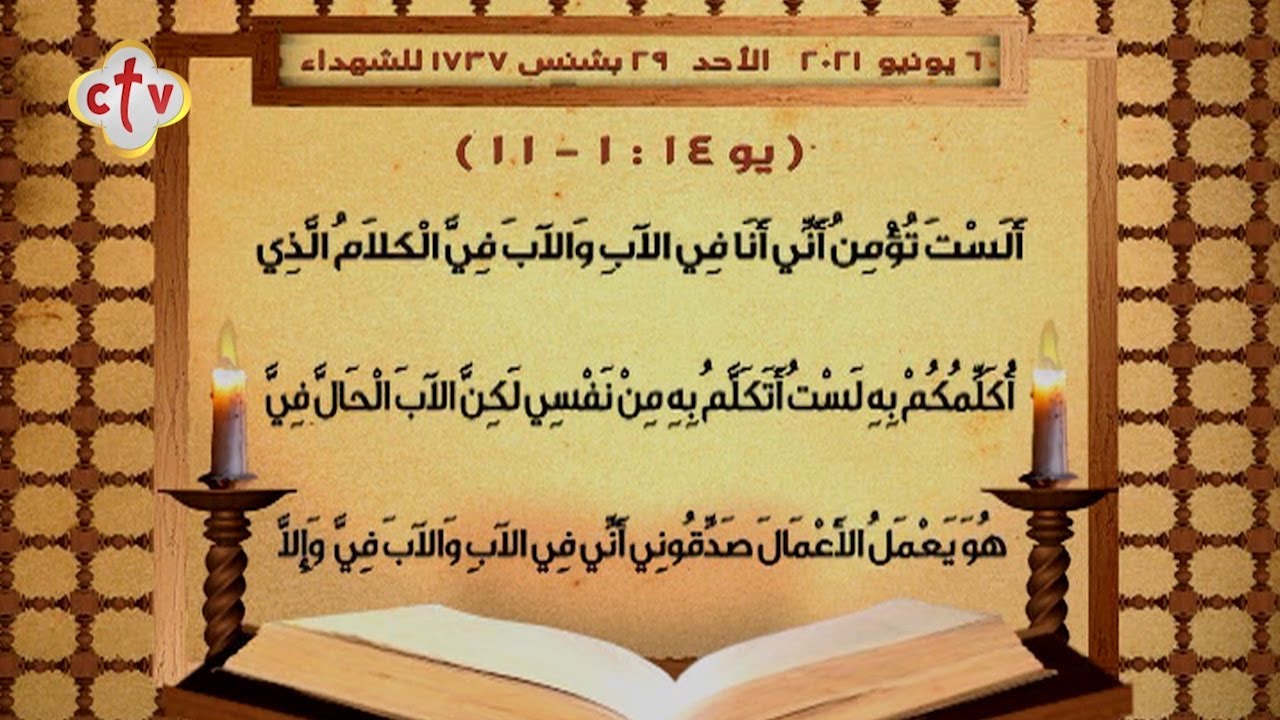 c t v
٦ يونيو ٢٠٢١ الأحد ٢٩ بشنس ١٧٣٧ للشهداء
( يو ١٤ : ١ - ١١ )
أَلَسْتَ تُؤْمِنُ أَنِّي أَنَا فِي الآبِ وَالآبَ فِيَّ الْكلاَمُ الَّذِي
أُكَلِّمُكُمْ بِهِ لَسْتُ أَتَكَلَّمُ بِهِ مِنْ نَفْسِي لَكِنَّ الآبَ الْحَالَّ فِيَّ
هُوَ يَعْمَلُ الأَعْمَالَ صَدِّقُونِي أَنِّي فِي الآبِ وَالآبَ فِيَّ وَإِلاَّ